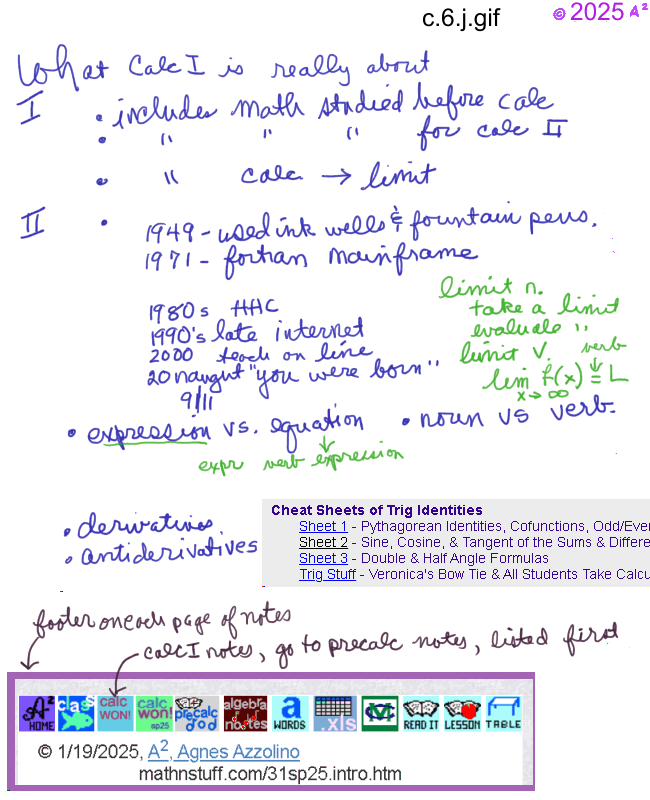 c.6.j.gif
© 2025 A²
What Calc I is really about
I • includes math studied before calc
• " " " for calc II
• " calc → limit
II •
1949 - used ink wells & fountain pens.
1971 - fortran mainframe
1980s HHC
1990's late internet
2000 teach on line
20 naught "you were born"
9/11
limit n.
take a limit
evaluate "
limit v. verb
lim f(x) = L
x → ∞
• expression vs. equation • noun vs verb.
expr verb expression
• derivatives
• antiderivatives
Cheat Sheets of Trig Identities
Sheet 1 - Pythagorean Identities, Cofunctions, Odd/Ever
Sheet 2 - Sine, Cosine, & Tangent of the Sums & Differe
Sheet 3 - Double & Half Angle Formulas
Trig Stuff - Veronica's Bow Tie & All Students Take Calcu
footer on each page of notes
calc I notes, go to precalc notes, listed first
A² HOME
clas
calc WON!
calc won! sp25
precalc
algebra notes
a WORDS
.xls
READ IT
LESSON
TABLE
© 1/19/2025, A², Agnes Azzolino
mathnstuff.com/31sp25.intro.htm